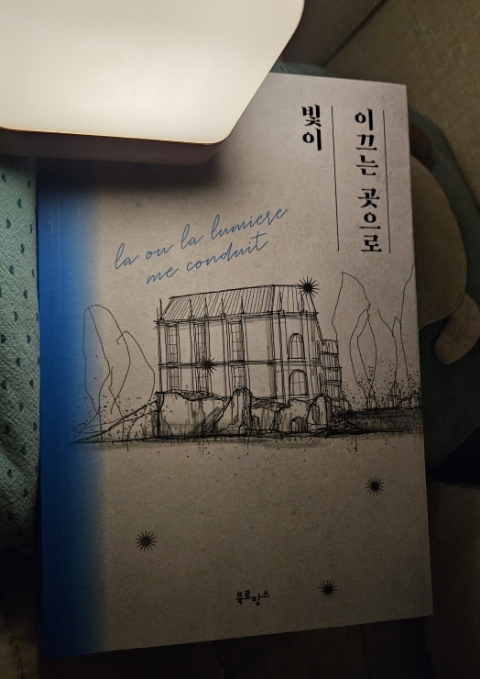 빛이
이끄는 곳으로
la ou la lumiere
me conduit
북로망스